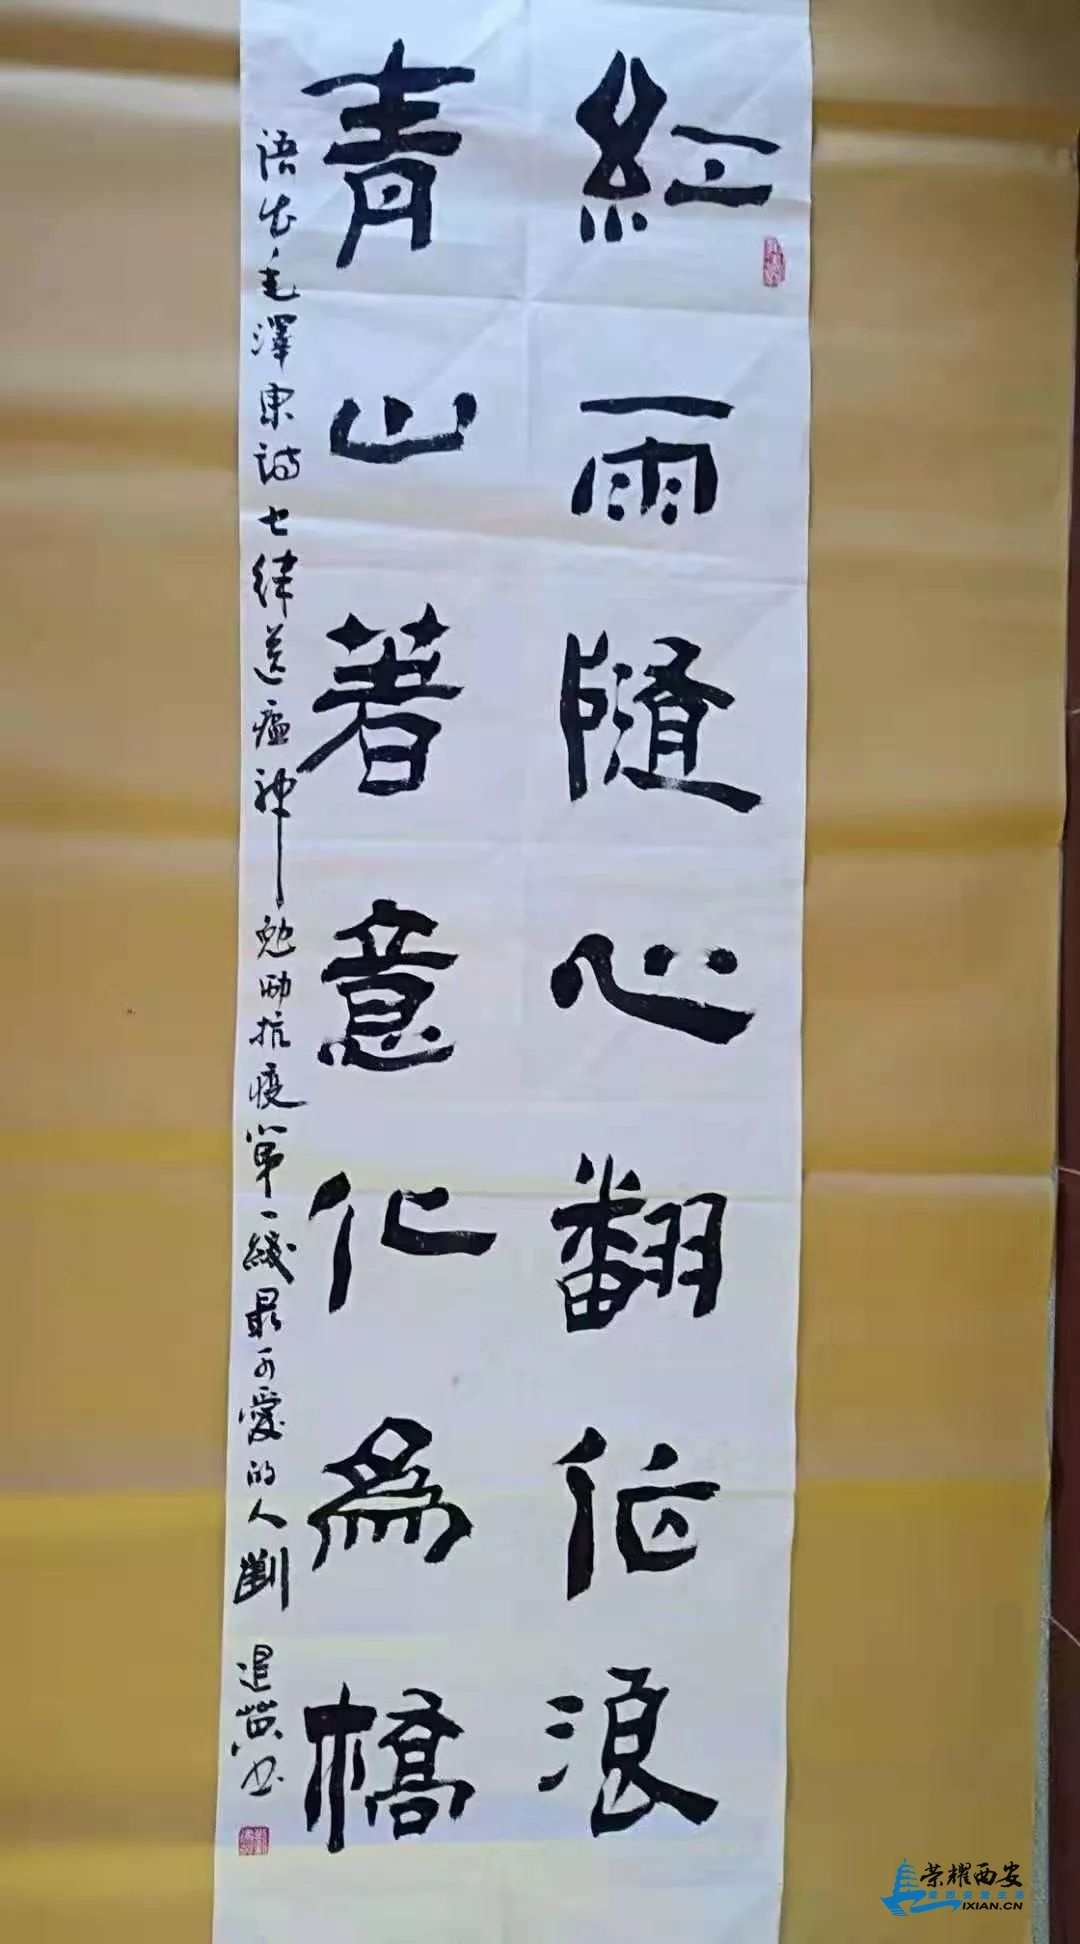 紅雨隨心翻作浪
青山著意化爲橋
語出毛澤東詩七律送瘟神勉勵抗疫第一綫最可愛的人劉
荣耀西安
爱西安爱生活
IXIAN.CN